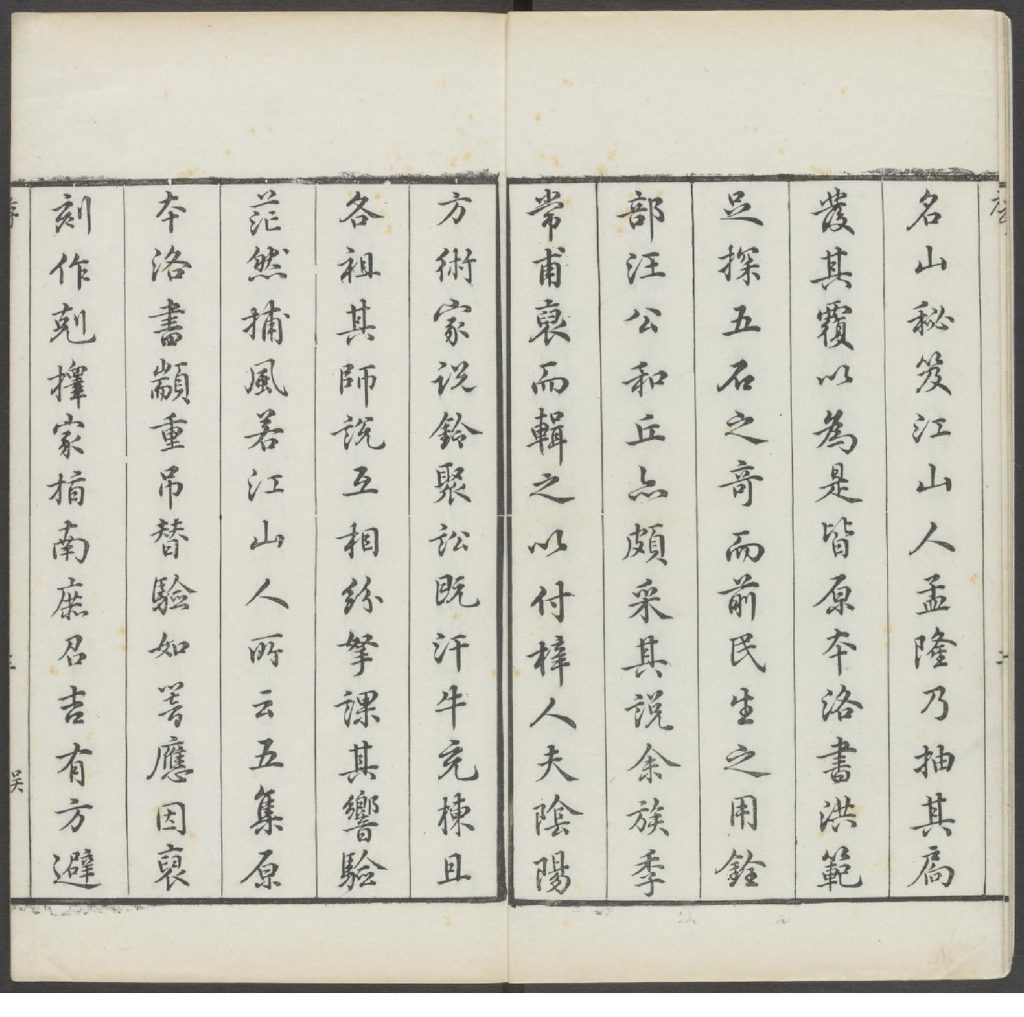 名山秘笈江山人孟隆乃抽其扃
發其覆以為是皆原本洛書洪範
足探五石之奇而前民生之用銓
部汪公和丘亦頗采其説余族季
常甫裒而輯之以付梓人夫陰陽
方術家説鈴聚訟既汗牛充棟且
各祖其師説互相紛拏課其響驗
茫然捕風若江山人所云五集原
本洛書顓重吊替驗如荅應因裒
刻作剋擇家指南庶召吉有方避
序